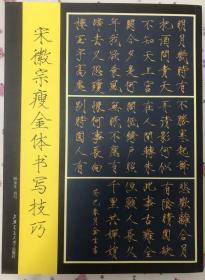 宋徽宗瘦金体书写技巧
上海交通大学出版社
明月幾時有
把酒問青天
不知天上宫
闕今夕是何
年我欲乘風
歸去又恐瓊
樓玉宇高處
不勝寒起舞
弄清影何似
在人間轉朱
閣低綺户照
無眠不應有
恨何事長向
别時圓人有
悲歡離合月
有陰晴圓缺
此事古難全
但願人長久
千里共嬋娟